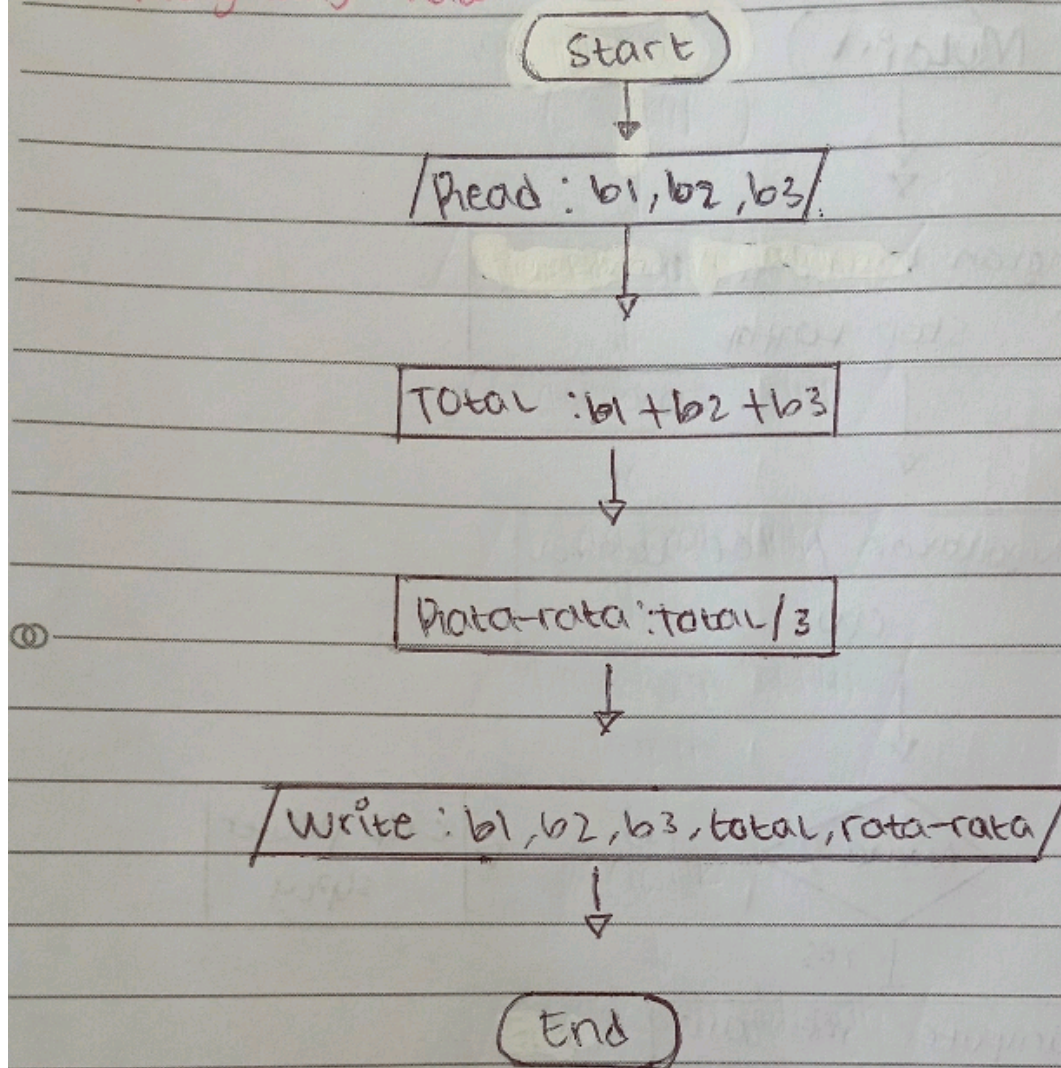 Start
Read : b1, b2, b3
Total : b1 + b2 + b3
Rata-rata : total / 3
Write : b1, b2, b3, total, rata-rata
End